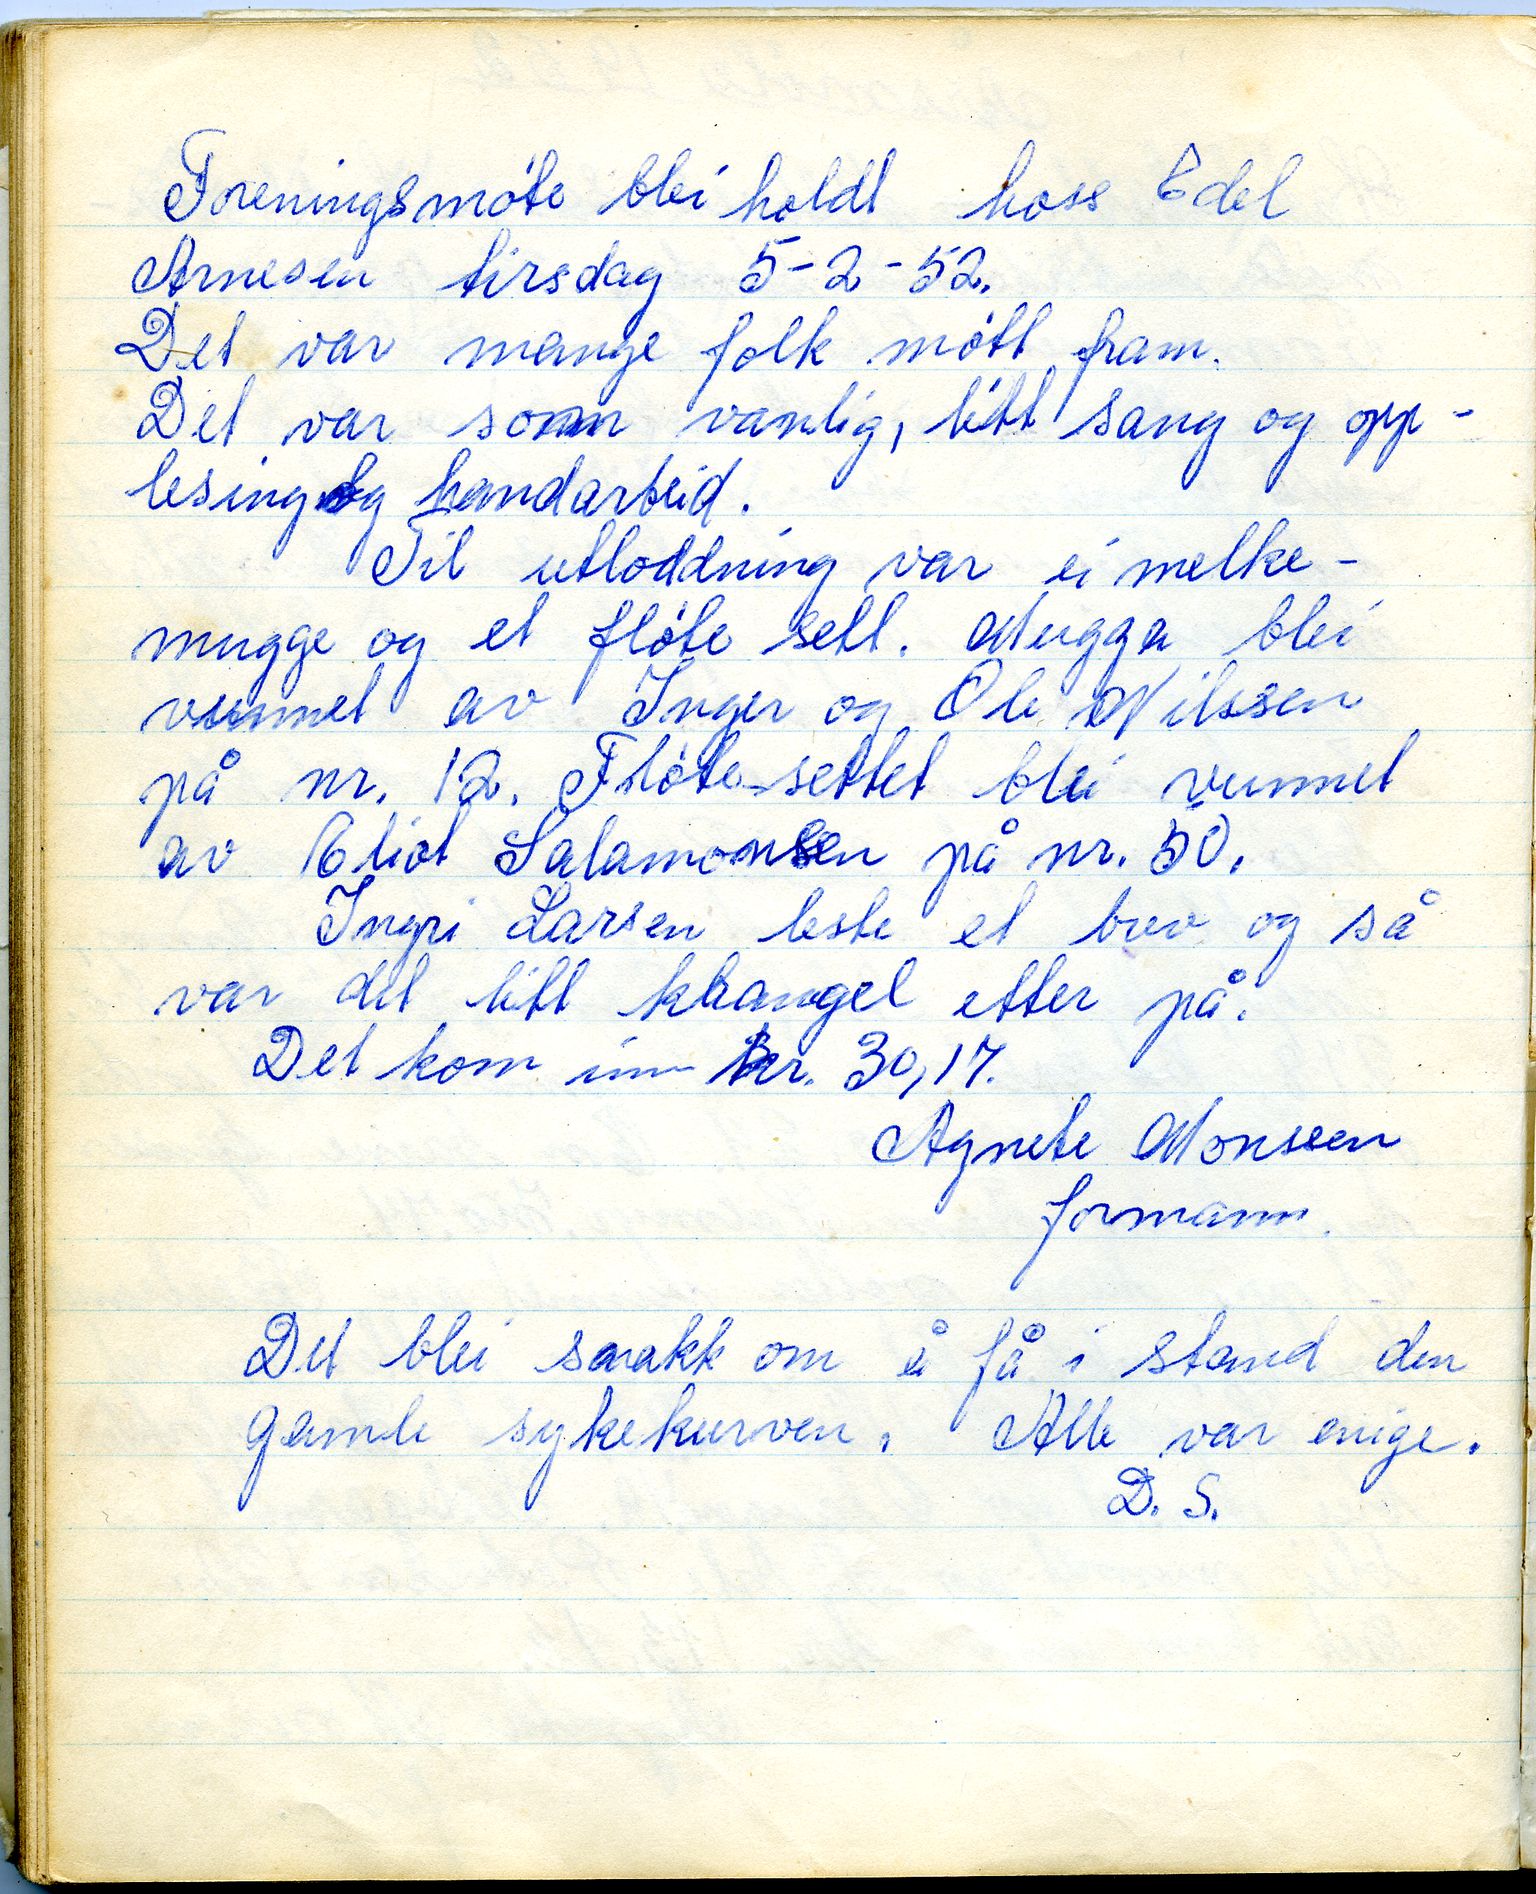 Foreningsmöte blei holdt hoss Edel
Arnesen tirsdag 5-2-52.
Det var mange folk mött fram.
Det var som vanlig, litt sang og opp-
lesing og handarbeid.
Til utloddning var ei melke-
mugge og et flöte sett. Mugga blei
vunnet av Inger og Ole Nilssen
på nr. 12. Flöte-settet blei vunnet
av Eliot Salamonsen på nr. 50.
Ingri Larsen leste et brev og så
var det litt krangel etter på.
Det kom inn kr. 30,17.
Agnete Monseen
formann.
Det blei snakk om å få i stand den
gamle sykekurven. Alle var enige.
D. S.